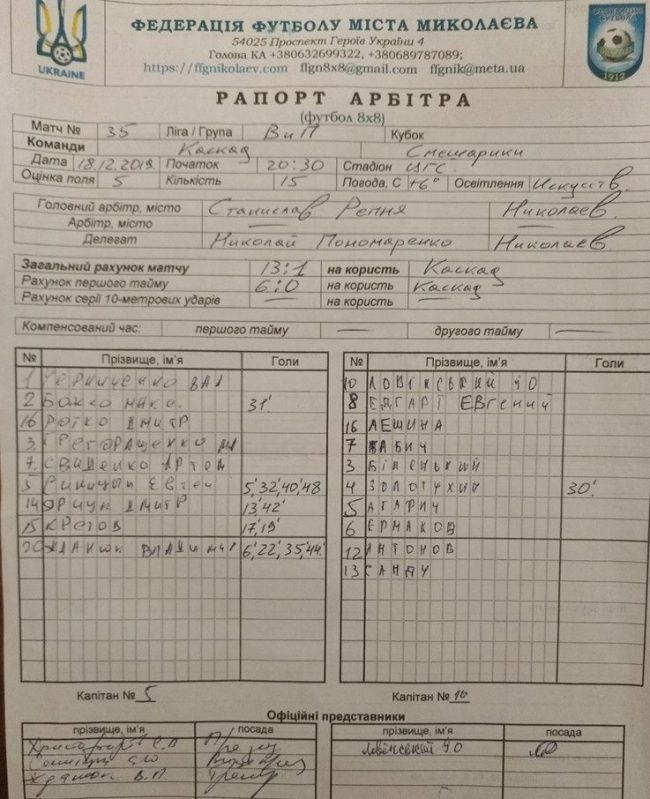 UKRAINE
1912
ФЕДЕРАЦІЯ ФУТБОЛУ МІСТА МИКОЛАЄВА
54025 Проспект Героїв України 4
Голова КА +38063269​9322, +380689787089;
https://ffgnikolaev.com ffgn8x8@gmail.com ffgnik@meta.ua
РАПОРТ АРБІТРА
(футбол 8х8)
Матч № 35 Ліга / Група В и П Кубок
Команди Каскад Смешарики
Дата 18.12.2019 Початок 20:30 Стадион ЦГС.
Оцінка поля 5 Кількість 15 Погода, С +6° Освітлення Искусств.
Головний арбітр, місто Станислав Репня Николаев.
Арбітр, місто
Делегат Николай Пономаренко Николаев
Загальний рахунок матчу 13:1 на користь Каскад
Рахунок першого тайму 6:0 на користь Каскад
Рахунок серії 10-метрових ударів на користь
Компенсований час: першого тайму — другого тайму —
№ Прізвище, ім'я Голи № Прізвище, ім'я Голи
1 10
2 БОЖКО 31' 8 ЕВГЕНИЙ
16 16 ЛЕШИНА
3 7 БАБИЧ
7 3
5 5', 32', 40', 48 4 ЗОЛОТУХИН 30'
14 13' 42' 5 АГАРИЧ
15 КРЕТОВ 17', 19' 6 ЕРМАКОВ
20 6', 22', 35', 44' 12 АНТОНОВ
13 САНДУ
Капітан № 5 Капітан № 10
Офіційні представники
прізвище, ім'я посада прізвище, ім'я посада